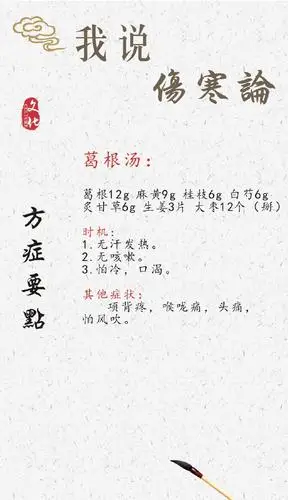 我说
傷寒論
文化
方症要點
葛根汤：
葛根12g 麻黄9g 桂枝6g 白芍6g
炙甘草6g 生姜3片 大枣12个（掰）
时机：
1.无汗发热。
2.无咳嗽。
3.怕冷，口渴。
其他症状：
项背疼，喉咙痛，头痛，
怕风吹。